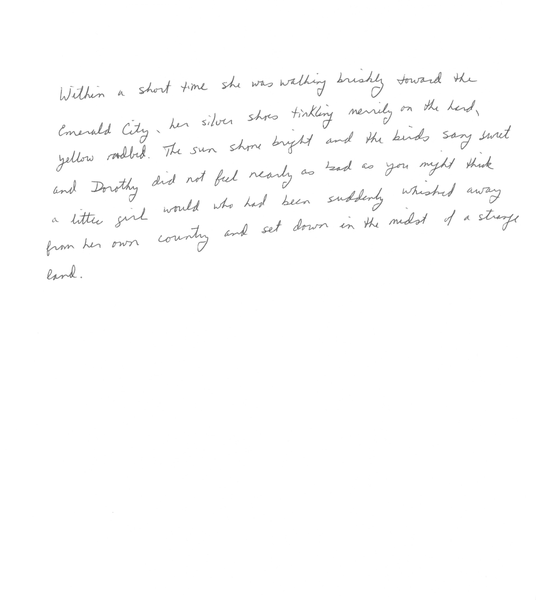 Within a short time she was walking briskly toward the
Emerald City, her silver shoes tinkling merrily on the hard,
yellow roadbed. The sun shone bright and the birds sang sweet
and Dorothy did not feel nearly as bad as you might think
a little girl would who had been suddenly whisked away
from her own country and set down in the midst of a strange
land.